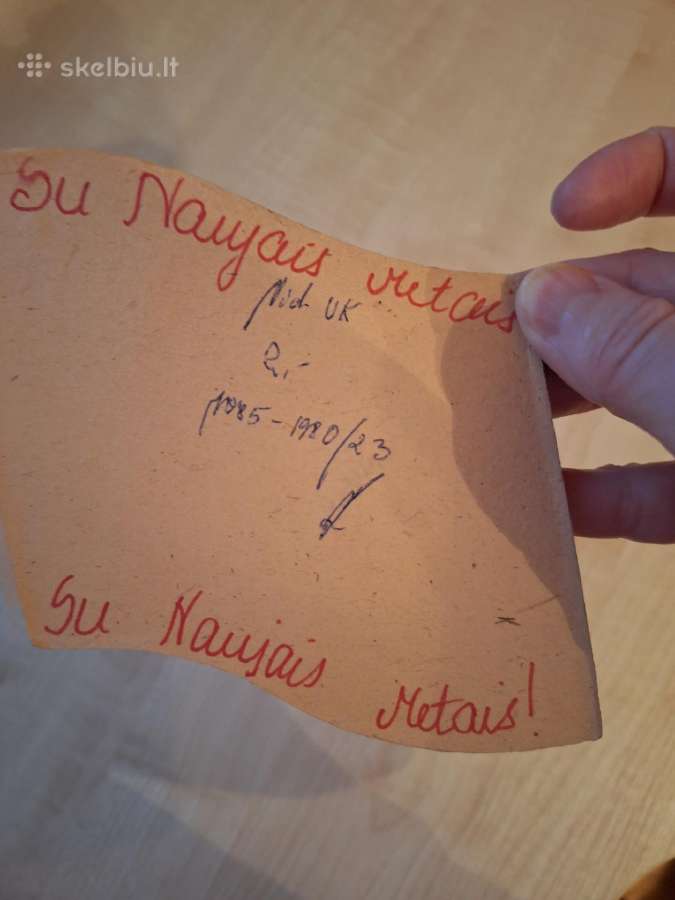 skelbiu.lt
Su Naujais metais
UK
1985-1980/23
Su Naujais metais!